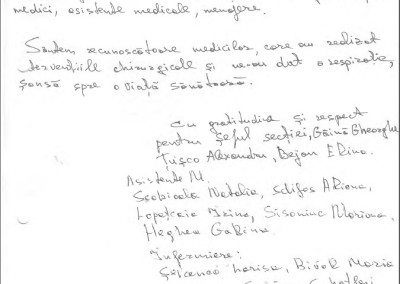 medici, asistente medicale, menajere.
Suntem recunoscătoare medicilor, care au realizat
intervenţiile chirurgicale şi ne-au dat o respiraţie,
şansă spre o viaţă sănătoasă.
Cu gratitudine şi respect
pentru Şeful secţiei, Găină Gheorghe
Ţuşco Alexandru, Bejan Elina.
Asistente M.
Scobicola Natalia, Ariana,
Irina, Mariana,
Heghea Galina.
Infermiere:
Larisa, Maria